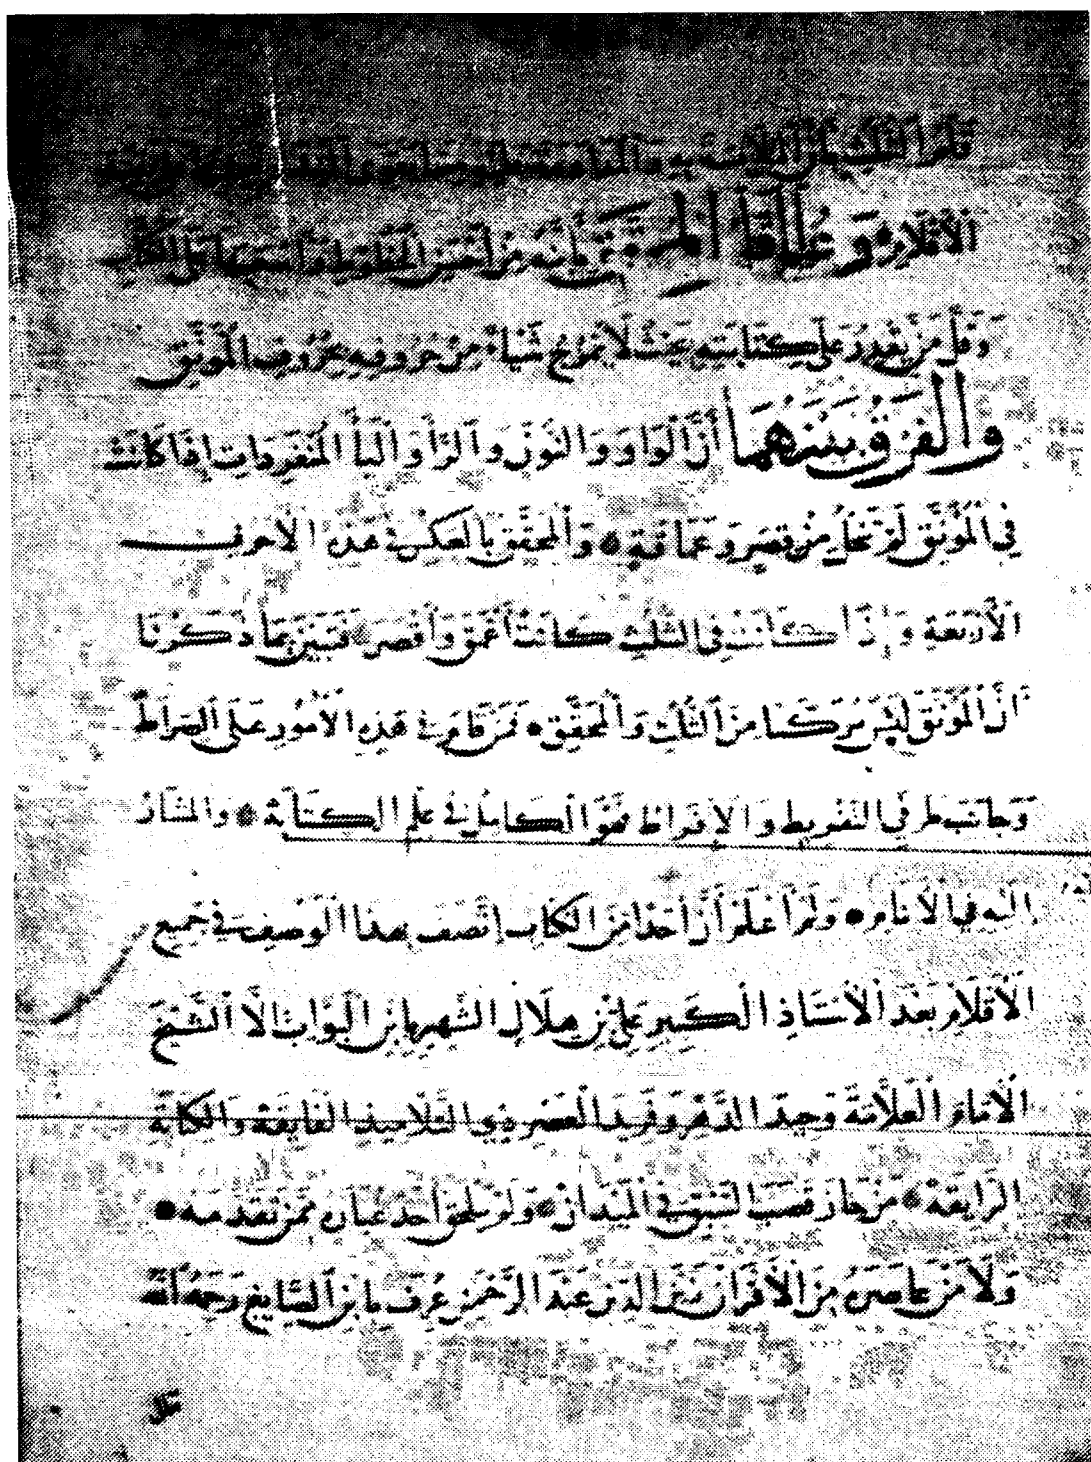 قلم الثلث
الأقلام وعليك المحقق فإنه من أحسن الخطوط وأصعبها على الكاتب
وَقَلَّ مَنْ يَقْدِرُ عَلَى كِتَابَتِهِ بحيث لَا يَمْزُج شَيْئًا مِنْ حُرُوفِهِ بِحُرُوفِ الْمُوَنَّقِ
وَالْفَرْقُ بَيْنَهُمَا أَنَّ الْوَاوَ وَالنُّونَ وَالرَّأَ وَالْيَأَ الْمُنْفَرِدَاتِ إِذَا كَانَتْ
فِي الْمُوَنَّقِ لَمْ تَخْلُ مِنْ قِصَرٍ وَعَمَاقَةٍ * وَالْمُحَقَّق بِالْعَكْسِ فِي هَذِهِ الْأَحْرُفِ
الْأَرْبَعَةِ وَإِذَا كَانَتْ فِي الثُّلُثِ كَانَتْ أَعْمَقَ وَأَقْصَرَ * فَتَبَيَّنَ بِمَا ذَكَرْنَا
أَنَّ الْمُوَنَّقَ لَيْسَ مُرَكَّبًا مِنَ الثُّلُثِ وَالْمُحَقَّقِ * فَمَنْ قَامَ فِي هَذِهِ الْأُمُورِ عَلَى الصِّرَاطِ
وَجَانَبَ طَرَفَيِ التَّفْرِيطِ وَالْإِفْرَاطِ فَهُوَ الْكَامِلُ فِي عِلْمِ الْكِتَابَةِ * وَالْمُشَارُ
إِلَيْهِ فِي الْأَنَامِ * وَلَمْ أَعْلَمْ أَنَّ أَحَدًا مِنَ الْكُتَّابِ اتَّصَفَ بِهَذَا الْوَصْفِ فِي جَمِيعِ
الْأَقْلَامِ بَعْدَ الْأُسْتَاذِ الْكَبِيرِ عَلِيِّ بْنِ هِلَالٍ الشَّهِيرِ بِابْنِ الْبَوَّابِ الَّا الشَّيْخَ
الْإِمَامَ الْعَلَّامَةَ وَحِيدَ الدَّهْرِ وَفَرِيدَ الْعَصْرِ ذِي التَّلَامِيذِ الْفَايِقَةِ وَالْكِتَابَةِ
الرَّايِقَةِ * مَنْ حَازَ قَصَبَ السَّبْقِ فِي الْمَيْدَانِ * وَلَمْ يَلْحَقْ أَحَدٌ غُبَارَهُ مِمَّنْ تَقَدَّمَهُ *
وَلَا مَنْ عَاصَرَهُ مِنَ الْأَقْرَانِ زَيْنَ الدِّينِ عَبْدَ الرَّحْمَنِ عُرِفَ بِابْنِ الصَّايِغِ رَحِمَهُ اللهُ